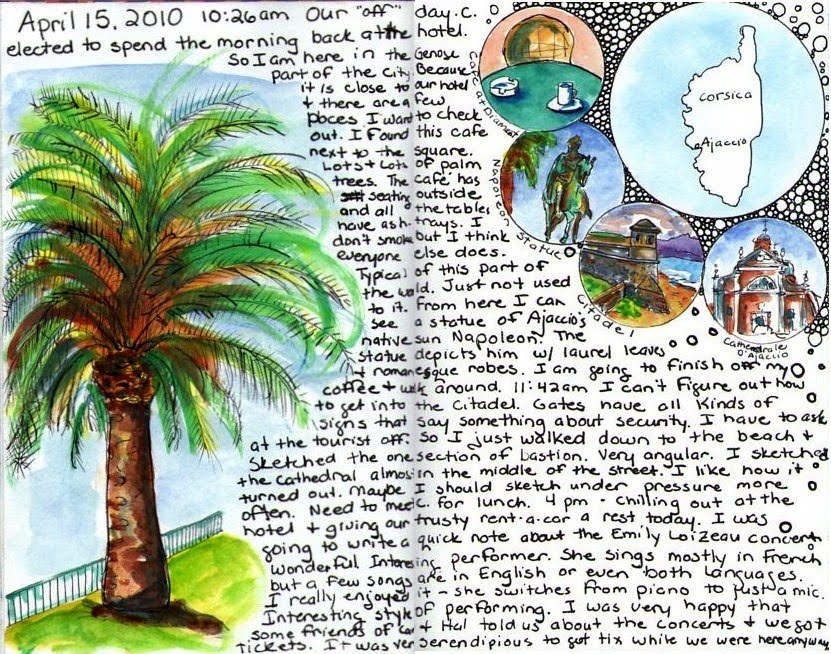 April 15, 2010 10:26am Our "off" day. C.
elected to spend the morning back at the hotel.
So I am here in the Genose
part of the city. Because
it is close to our hotel
+ there are a few
places I want to check
out. I found this cafe
next to the square.
Lots + Lots of palm
trees. The café has
seating outside
and all the tables
have ash. trays. I
don't smoke but I think
everyone else does.
Typical of this part of
the world. Just not used
to it. From here I can
see a statue of Ajaccio's
native sun Napoleon. The
statue depicts him w/ laurel leaves
+ romanesque robes. I am going to finish off my
coffee + walk around. 11:42am I can't figure out how
to get into the Citadel. Gates have all kinds of
signs that say something about security. I have to ask
at the tourist off. So I just walked down to the beach +
Sketched the one section of bastion. Very angular. I sketched
the cathedral almost in the middle of the street. I like how it
turned out. Maybe I should sketch under pressure more
often. Need to meet C. for lunch. 4 pm - chilling out at the
hotel + giving our trusty rent-a-car a rest today. I was
going to write a quick note about the Emily Loizeau concert
Wonderful Interesting performer. She sings mostly in French
but a few songs are in English or even both languages.
I really enjoyed it - she switches from piano to just a mic.
Interesting style of performing. I was very happy that
some friends of + Hal told us about the concerts + we got
tickets. It was very serendipious to get tix while we were here anyway
Café at Diamant
Napoleon Statue
Citadel
Cathedrale D'Ajaccio
Corsica
Ajaccio